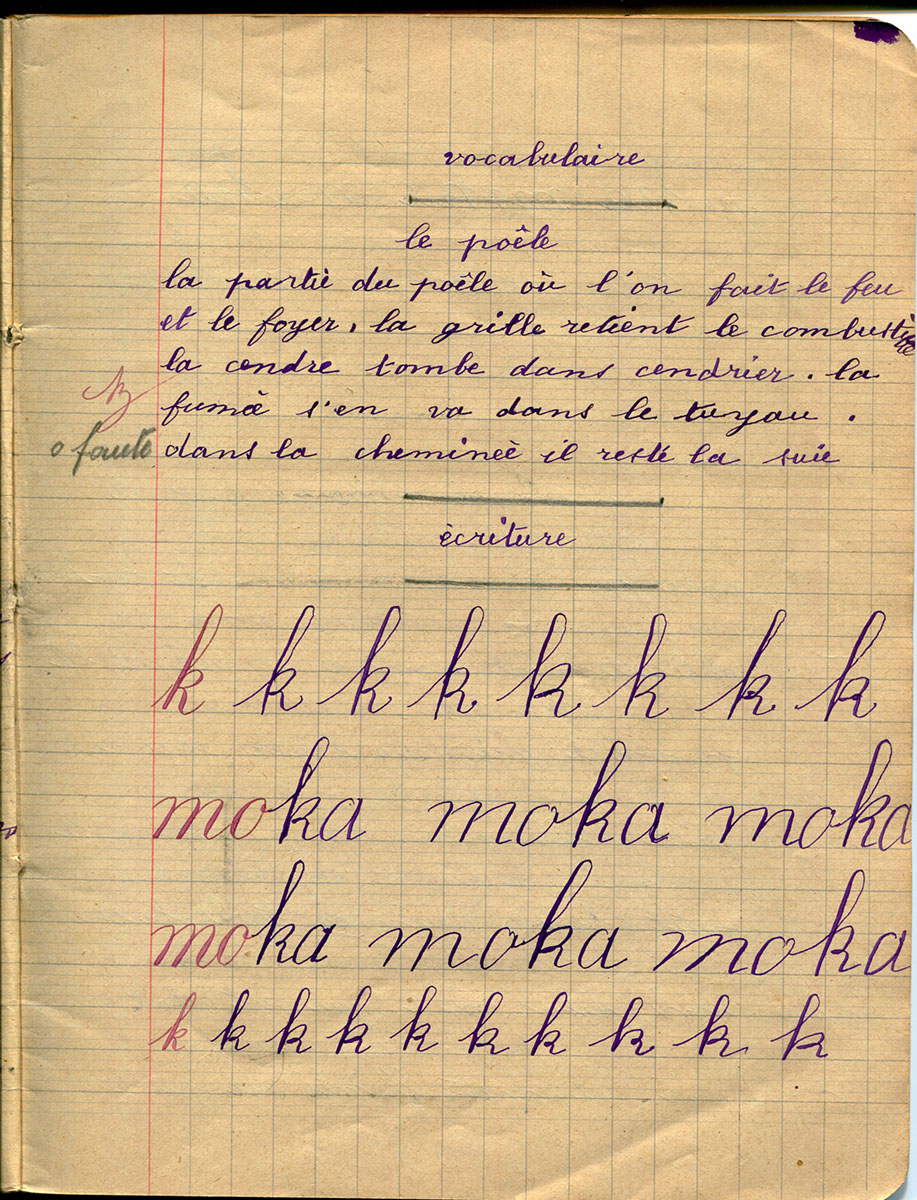 vocabulaire
le poêle
la partiè du poêle où l'on fait le feu
et le foyer. la grille retient le combustible
la cendre tombe dans cendrier. la
fumèe s'en va dans le tuyau.
o faute dans la chemineè il resté la suie
ècriture
k k k k k k k k
moka moka moka
moka moka moka
k k k k k k k k k k